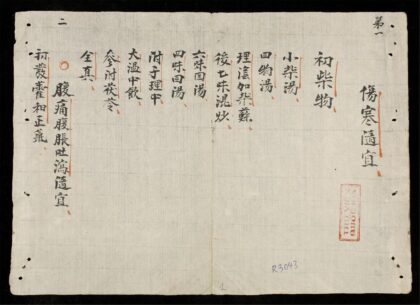 第一
傷寒隨宜
初柴物
小柴湯
四物湯
理陰加柴蘇
後七味
六味回湯
四味回湯
附子理中
大溫中飲
參附茯苓
全真
二
腹痛腹脹吐瀉隨宜
初發藿和正氣
R3043